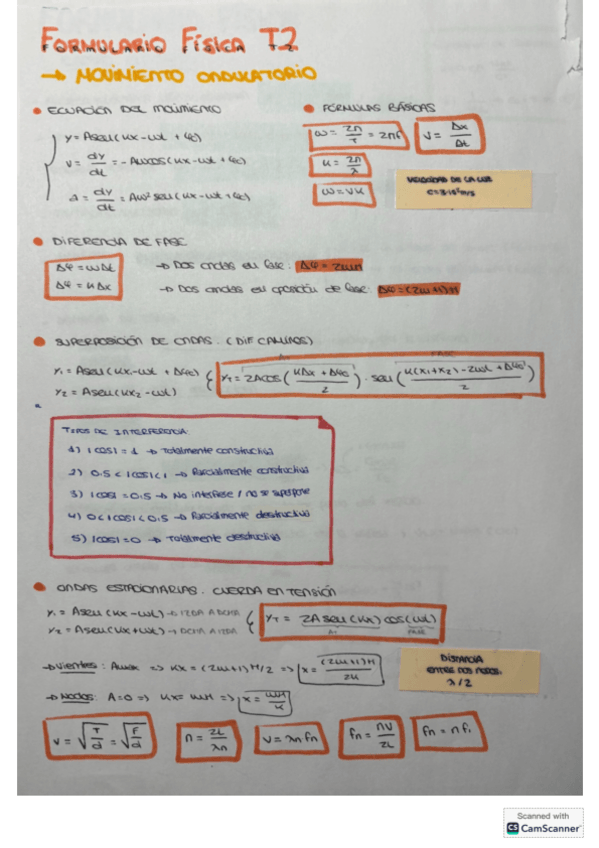 FORMULARIO FÍSICA T2
→ MOVIMIENTO ONDULATORIO
• ECUACIÓN DEL MOVIMIENTO
y = A sen (kx - ωt + φ₀)
v = dy/dt = - Aωcos (kx - ωt + φ₀)
a = dy/dt = Aω² sen (kx - ωt + φ₀)
• FÓRMULAS BÁSICAS
ω = 2π/T = 2πf
v = Δx/Δt
k = 2π/λ
ω = vk
VELOCIDAD DE LA LUZ
c = 3·10⁸ m/s
• DIFERENCIA DE FASE
Δφ = ωΔt
Δφ = kΔx
→ Dos ondas en fase: Δφ = 2πn
→ Dos ondas en oposición de fase: Δφ = (2n+1)π
• SUPERPOSICIÓN DE ONDAS. (DIF CAMINOS)
y₁ = A sen (kx₁ - ωt + Δφ₀)
y₂ = A sen (kx₂ - ωt)
yT = 2A cos ( (kΔx + Δφ₀)/2 ) · sen ( (k(x₁+x₂) - 2ωt + Δφ₀)/2 )
FASE
TIPOS DE INTERFERENCIA:
1) |cos| = 1 → Totalmente constructiva
2) 0.5 < |cos| < 1 → Parcialmente constructiva
3) |cos| = 0.5 → No interfiere / no se superpone
4) 0 < |cos| < 0.5 → Parcialmente destructiva
5) |cos| = 0 → Totalmente destructiva
• ONDAS ESTACIONARIAS. CUERDA EN TENSIÓN
y₁ = A sen (kx - ωt) → IZDA A DCHA
y₂ = A sen (kx + ωt) → DCHA A IZDA
yT = 2A sen (kx) cos (ωt)
AT FASE
→ Vientres: Amax => kx = (2n+1)π/2 => x = (2n+1)π/2k
→ Nodos: A = 0 => kx = nπ => x = nπ/k
DISTANCIA
ENTRE DOS NODOS:
λ/2
v = √(T/d) = √(F/d)
n = 2L/λn
v = λn fn
fn = nv/2L
fn = n f₁
Scanned with
CS CamScanner